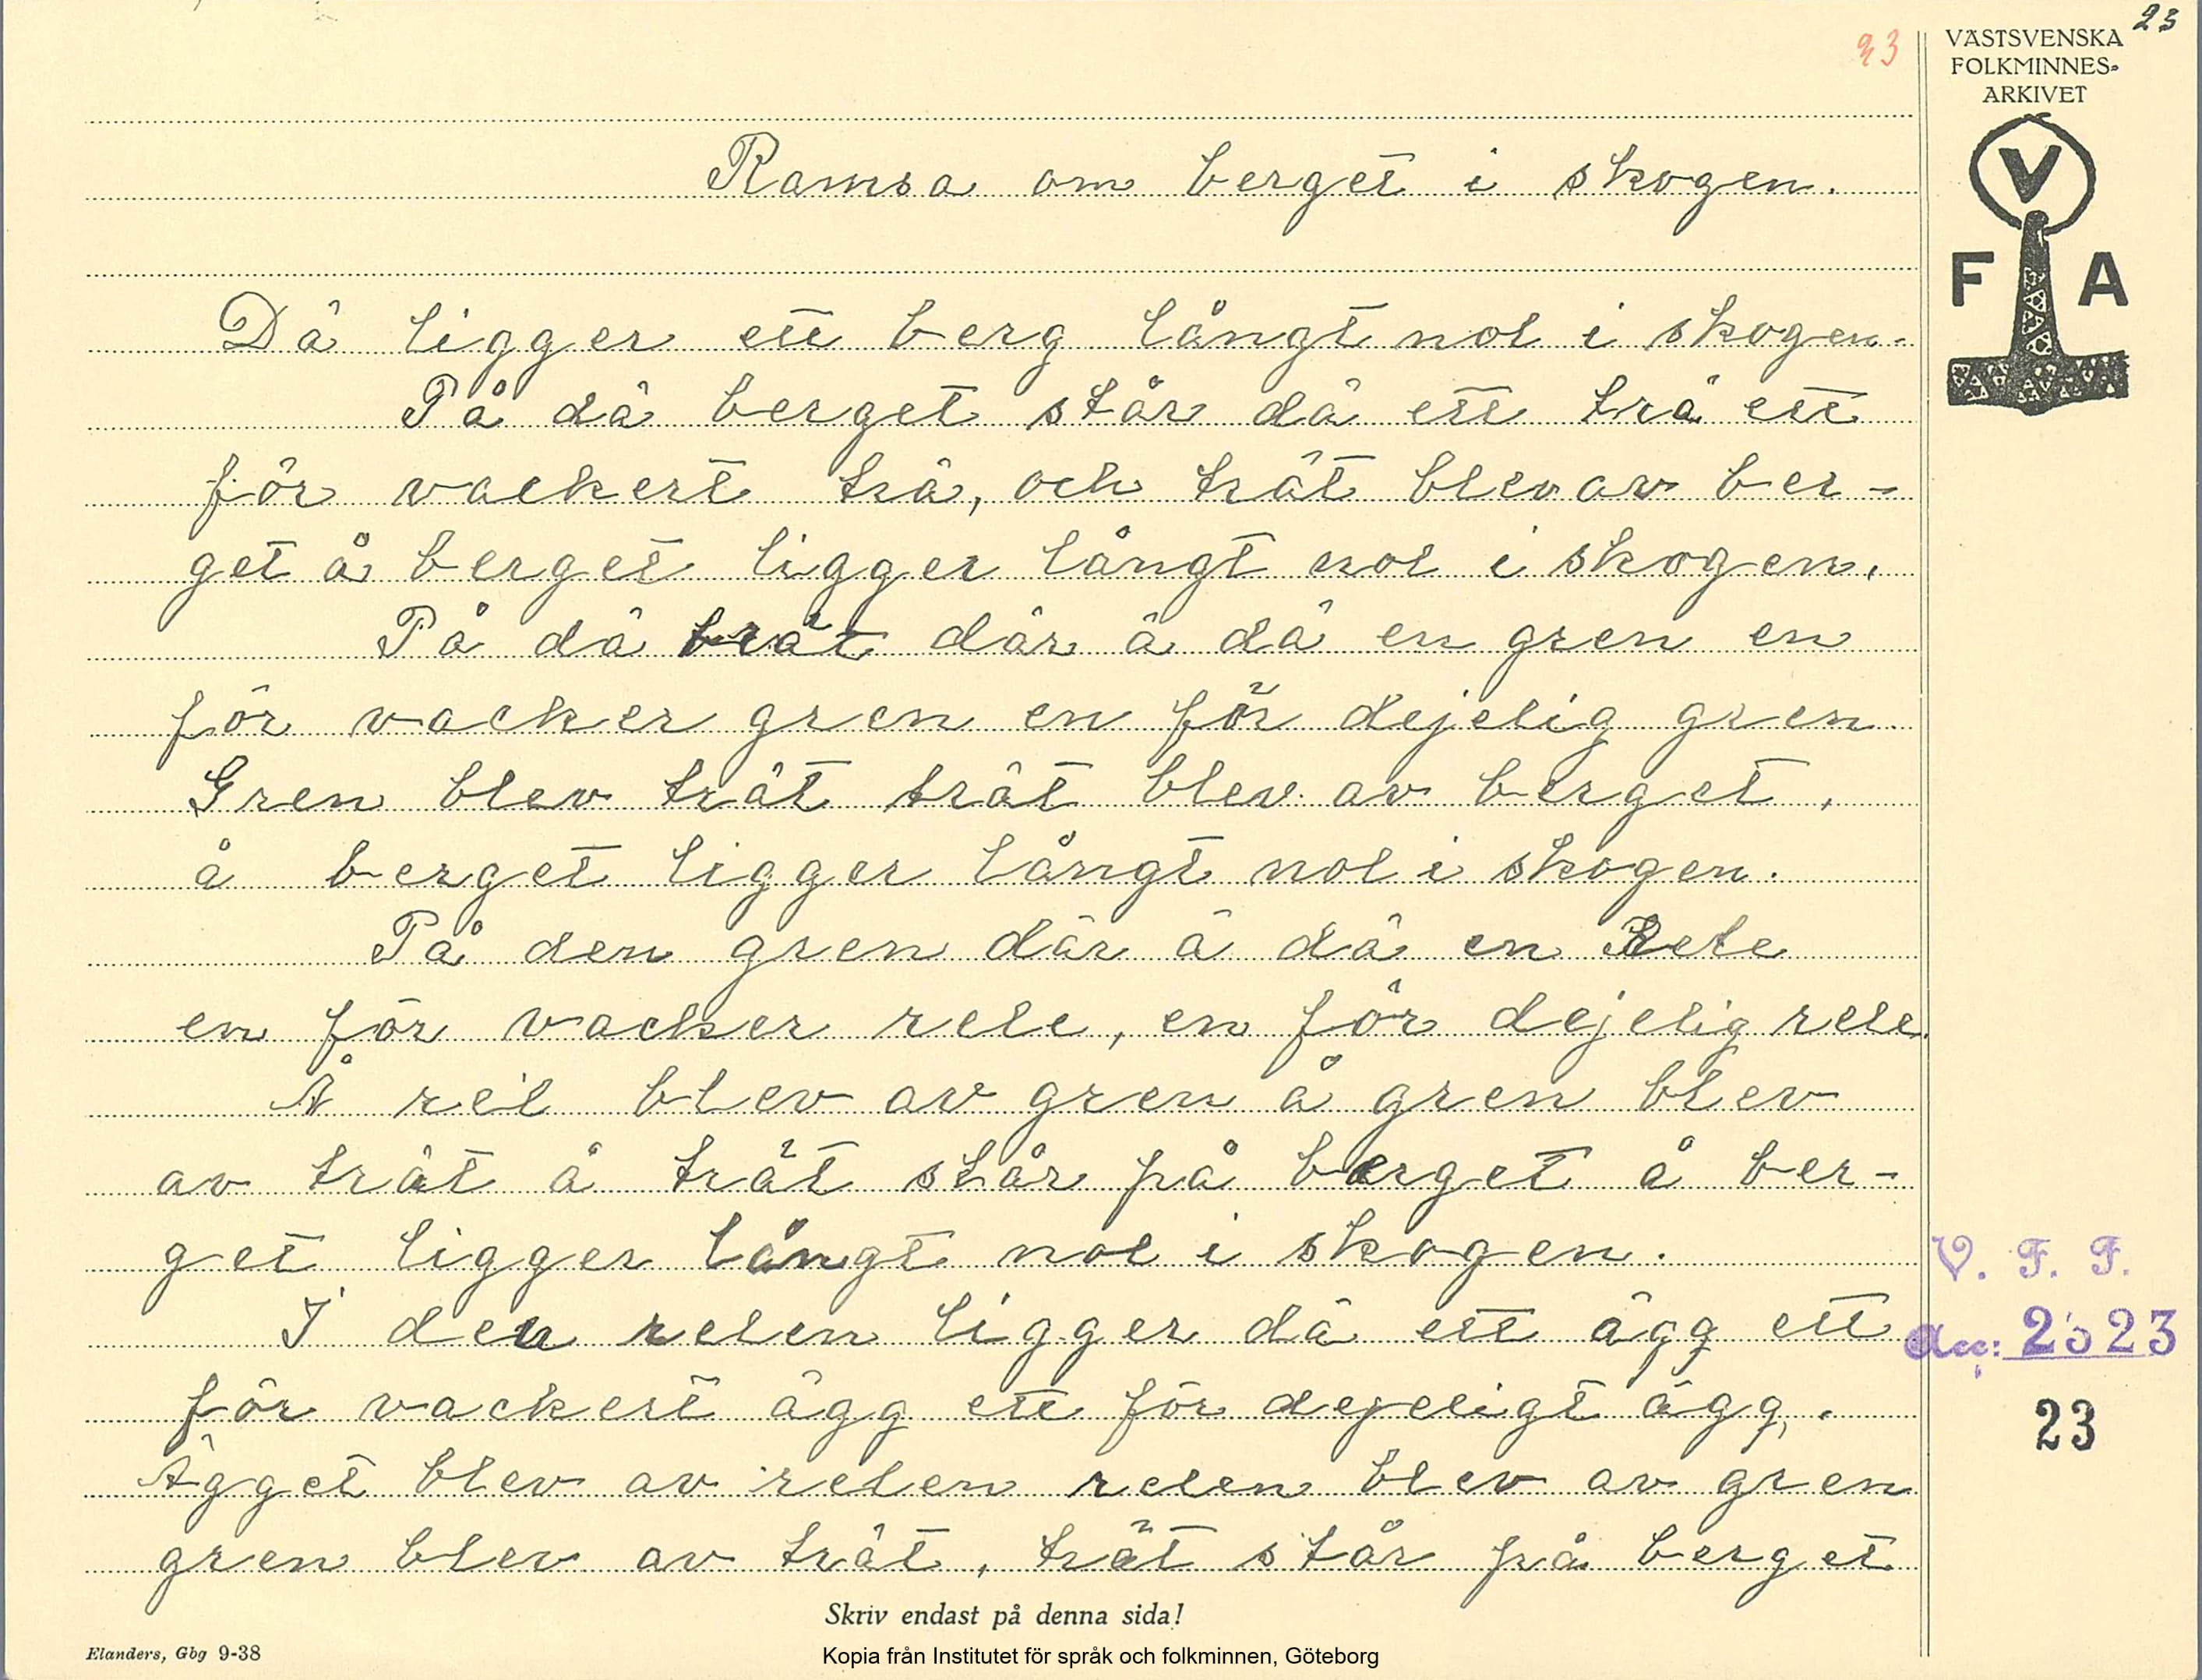 23
23
VÄSTSVENSKA
FOLKMINNES-
ARKIVET
V
F A
Ramsa om berget i skogen.
Dä ligger ett berg långt nol i skogen.
På dä berget står dä ett trä ett
för vackert trä, och trät blev av ber-
get å berget ligger långt nol i skogen.
På dä trät där ä dä en gren en
för vacker gren en för dejelig gren
Gren blev trät trät blev av berget,
å berget ligger långt nol i skogen.
På den gren där ä dä en Rele
en för vacker rele, en för dejelig rele.
Å rel blev av gren å gren blev
av trät å trät står på berget å ber-
get ligger långt nol i skogen.
I den relen ligger dä ett ägg ett
för vackert ägg ett för dejeligt ägg.
Ägget blev av relen relen blev av gren
gren blev av trät, trät står på berget
V. F. F.
Acc: 2323
23
Skriv endast på denna sida!
Elanders, Gbg 9-38
Kopia från Institutet för språk och folkminnen, Göteborg